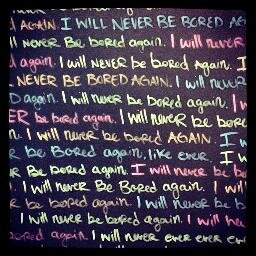 D AGAIN. I WILL NEVER BE BORED AG
ll NEVER Be bored again. I will never
d again. I will NEVER be bored again. I
L NEVER BE BORED AGAIN. I will n
D again. I will never be bored again. I w
ER be bored again. I will NEVER be bo
n. I will never be bored AGAIN. I w
r be Bored again, like ever. I w
. I will never be bored again. I will never be b
d. I will never Be Bored again. I will ne
er be bored again. I will never be b
. I will never be bored again. I will ne
ored again. I will never ever ever ev